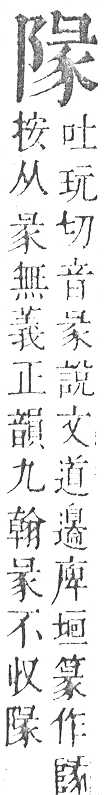 隊
吐玩切音彖說文道邉庳垣篆作𨼥
按从彖無義正韻九翰彖不收隊